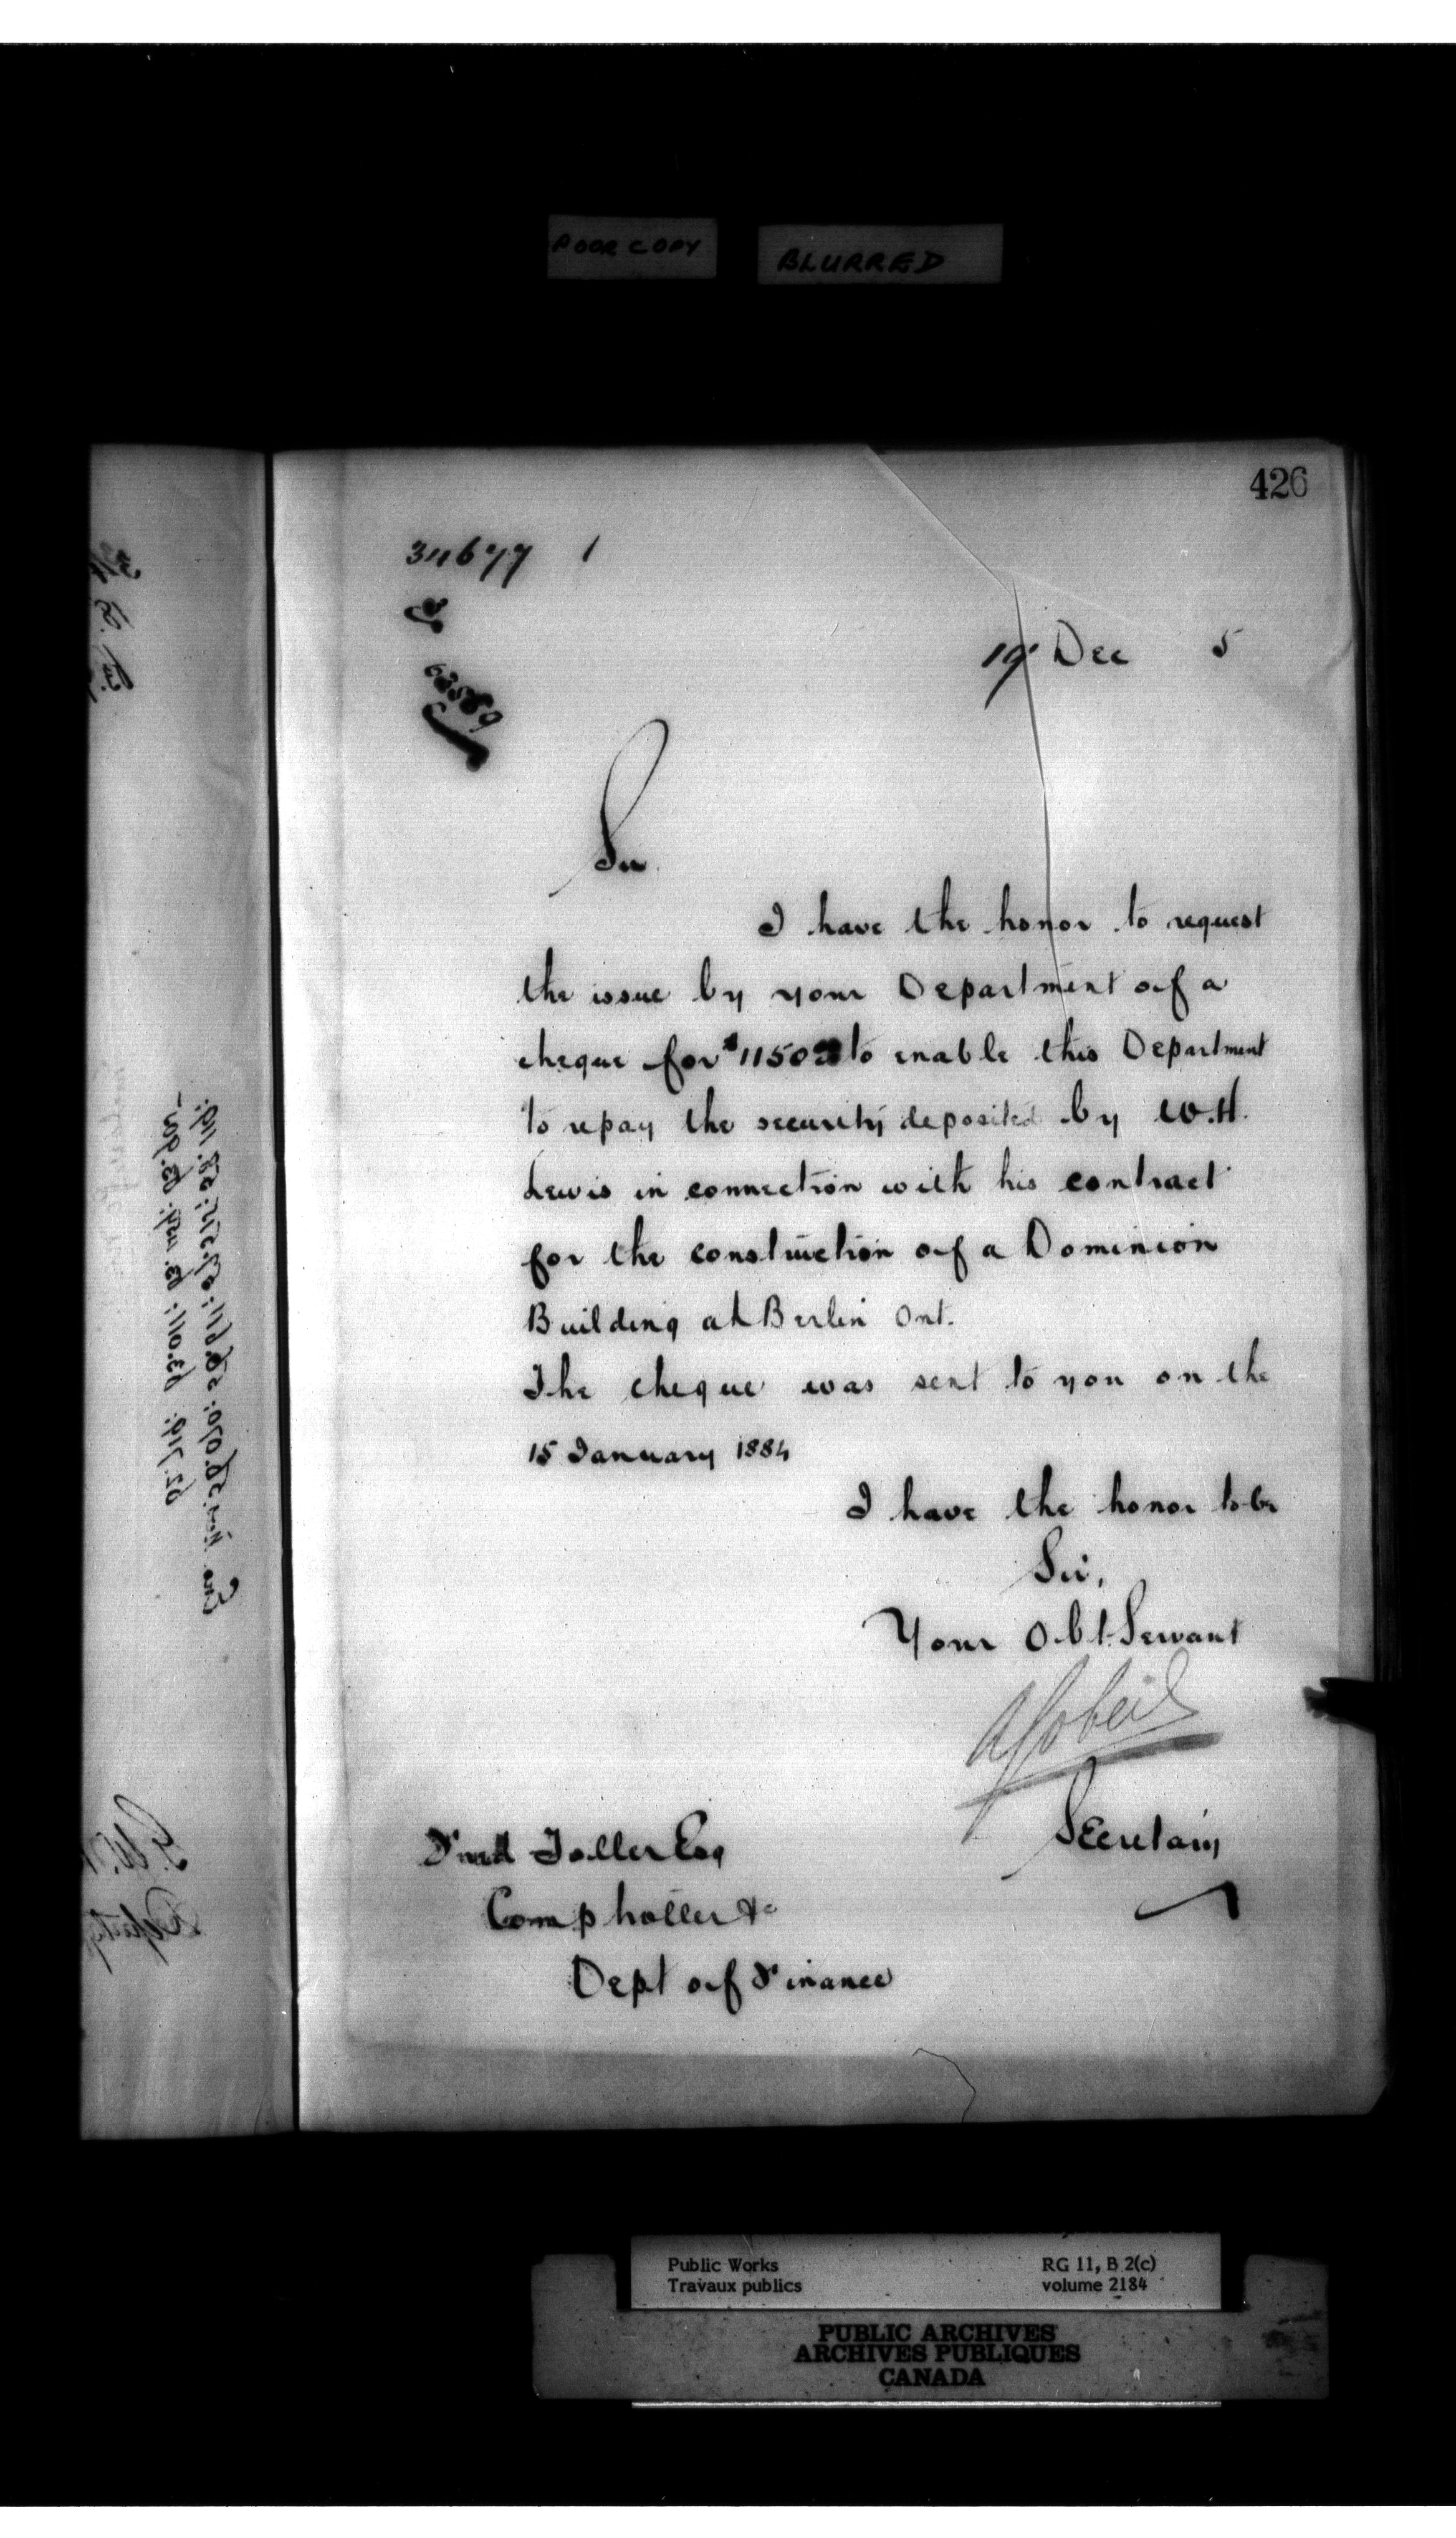 POOR COPY BLURRED
426
19 Dec 5
Sir
I have the honor to request
the issue by your Department of a
cheque for $1150 to enable this Department
to repay the security deposited by W.H.
Lewis in connection with his contract
for the construction of a Dominion
Building at Berlin Ont.
The cheque was sent to you on the
15 January 1884
I have the honor to be
Sir,
Your Obt. Servant
AGobeil
Secretary
Fred Toller Esq
Comptroller &c
Dept of Finance
Public Works RG 11, B 2(c)
Travaux publics volume 2184
PUBLIC ARCHIVES
ARCHIVES PUBLIQUES
CANADA